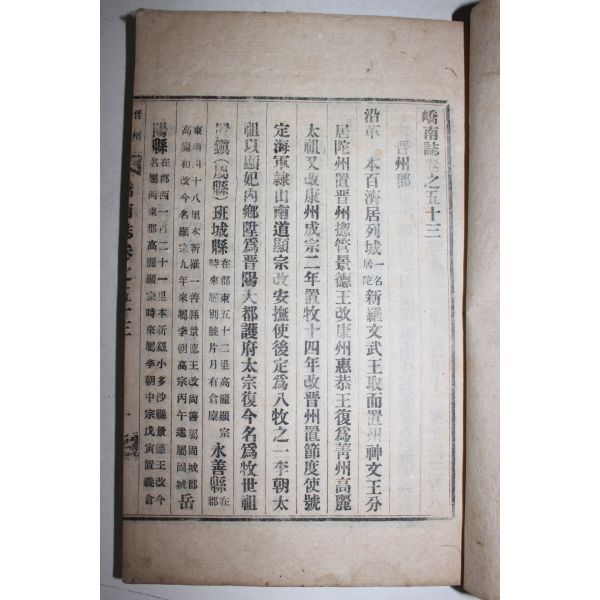 嶠南誌卷之五十三
晋州郡
沿革 本百濟居列城一名居陀新羅文武王取而置州神文王分
居陀州置晋州摠管景德王改康州惠恭王復爲菁州高麗
太祖又改康州成宗二年置牧十四年改晋州置節度使號
定海軍隷山南道顯宗改安撫使後定爲八牧之一李朝太
祖以顯妃內鄕陞爲晋陽大都護府太宗復今名爲牧世祖
鎭(屬縣)班城縣在郡東五十二里高麗顯宗時來屬別號片月有倉廩永善縣在郡
東南四十八里本新羅一善縣景德王改尙善屬固城郡高麗初改今名顯宗九年來屬李朝高宗丙午還屬固城岳
陽縣在郡西一百二十一里本新羅小多沙縣景德王改今名屬河東郡高麗顯宗時來屬李朝中宗戊寅置義倉
晋州 嶠南誌卷之五十三 一